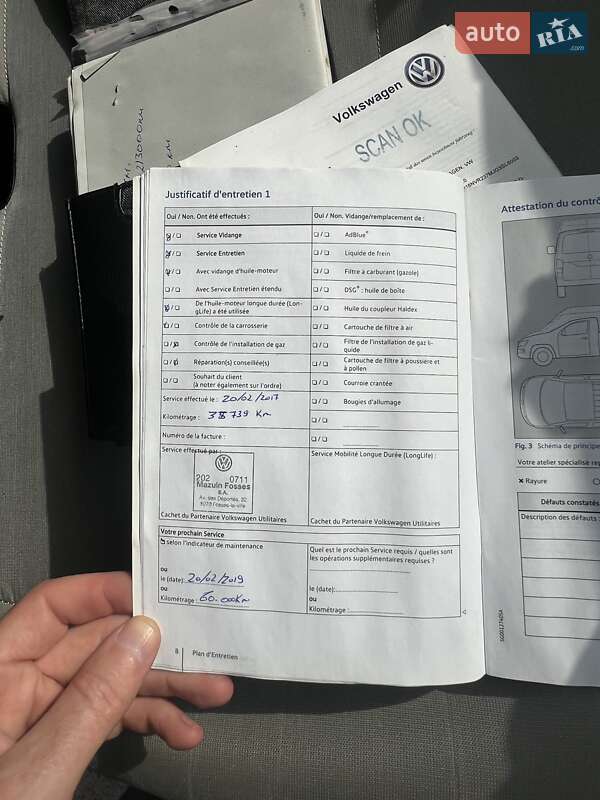 auto RIA.com
Volkswagen
SCAN OK
213000km
Justificatif d'entretien 1
Attestation du contrô
Oui / Non. Ont été effectués :
Oui / Non. Vidange/remplacement de :
Service Vidange
AdBlue®
Service Entretien
Liquide de frein
Avec vidange d'huile-moteur
Filtre a carburant (gazole)
Avec Service Entretien étendu
DSG® : huile de boîte
De l'huile-moteur longue durée (Lon-
gLife) a été utilisée
Huile du coupleur Haldex
Contrôle de la carrosserie
Cartouche de filtre à air
Contrôle de l'installation de gaz
Filtre de l'installation de gaz li-
quide
Réparation(s) conseillée(s)
Cartouche de filtre à poussière et
à pollen
Souhait du client
(à noter également sur l'ordre)
Courroie crantée
Service effectué le : 20/02/2017
Bougies d'allumage
Kilométrage : 38 739 Km
Numéro de la facture :
Service effectué par :
Service Mobilité Longue Durée (LongLife) :
202 0711
Mazuin Fosses
S.A.
Av. des Déportés, 32
5070 Fosses-la-Ville
Cachet du Partenaire Volkswagen Utilitaires
Cachet du Partenaire Volkswagen Utilitaires
Votre prochain Service
selon l'indicateur de maintenance
Quel est le prochain Service requis / quelles sont
les opérations supplémentaires requises ?
ou
le (date): 20/02/2019
le (date):
ou
ou
Kilométrage : 60.000Km
Kilométrage :
8 Plan d'Entretien
Fig. 3 Schéma de principe
Votre atelier spécialisé rep
Rayure
Défauts constatés
Description des défauts :